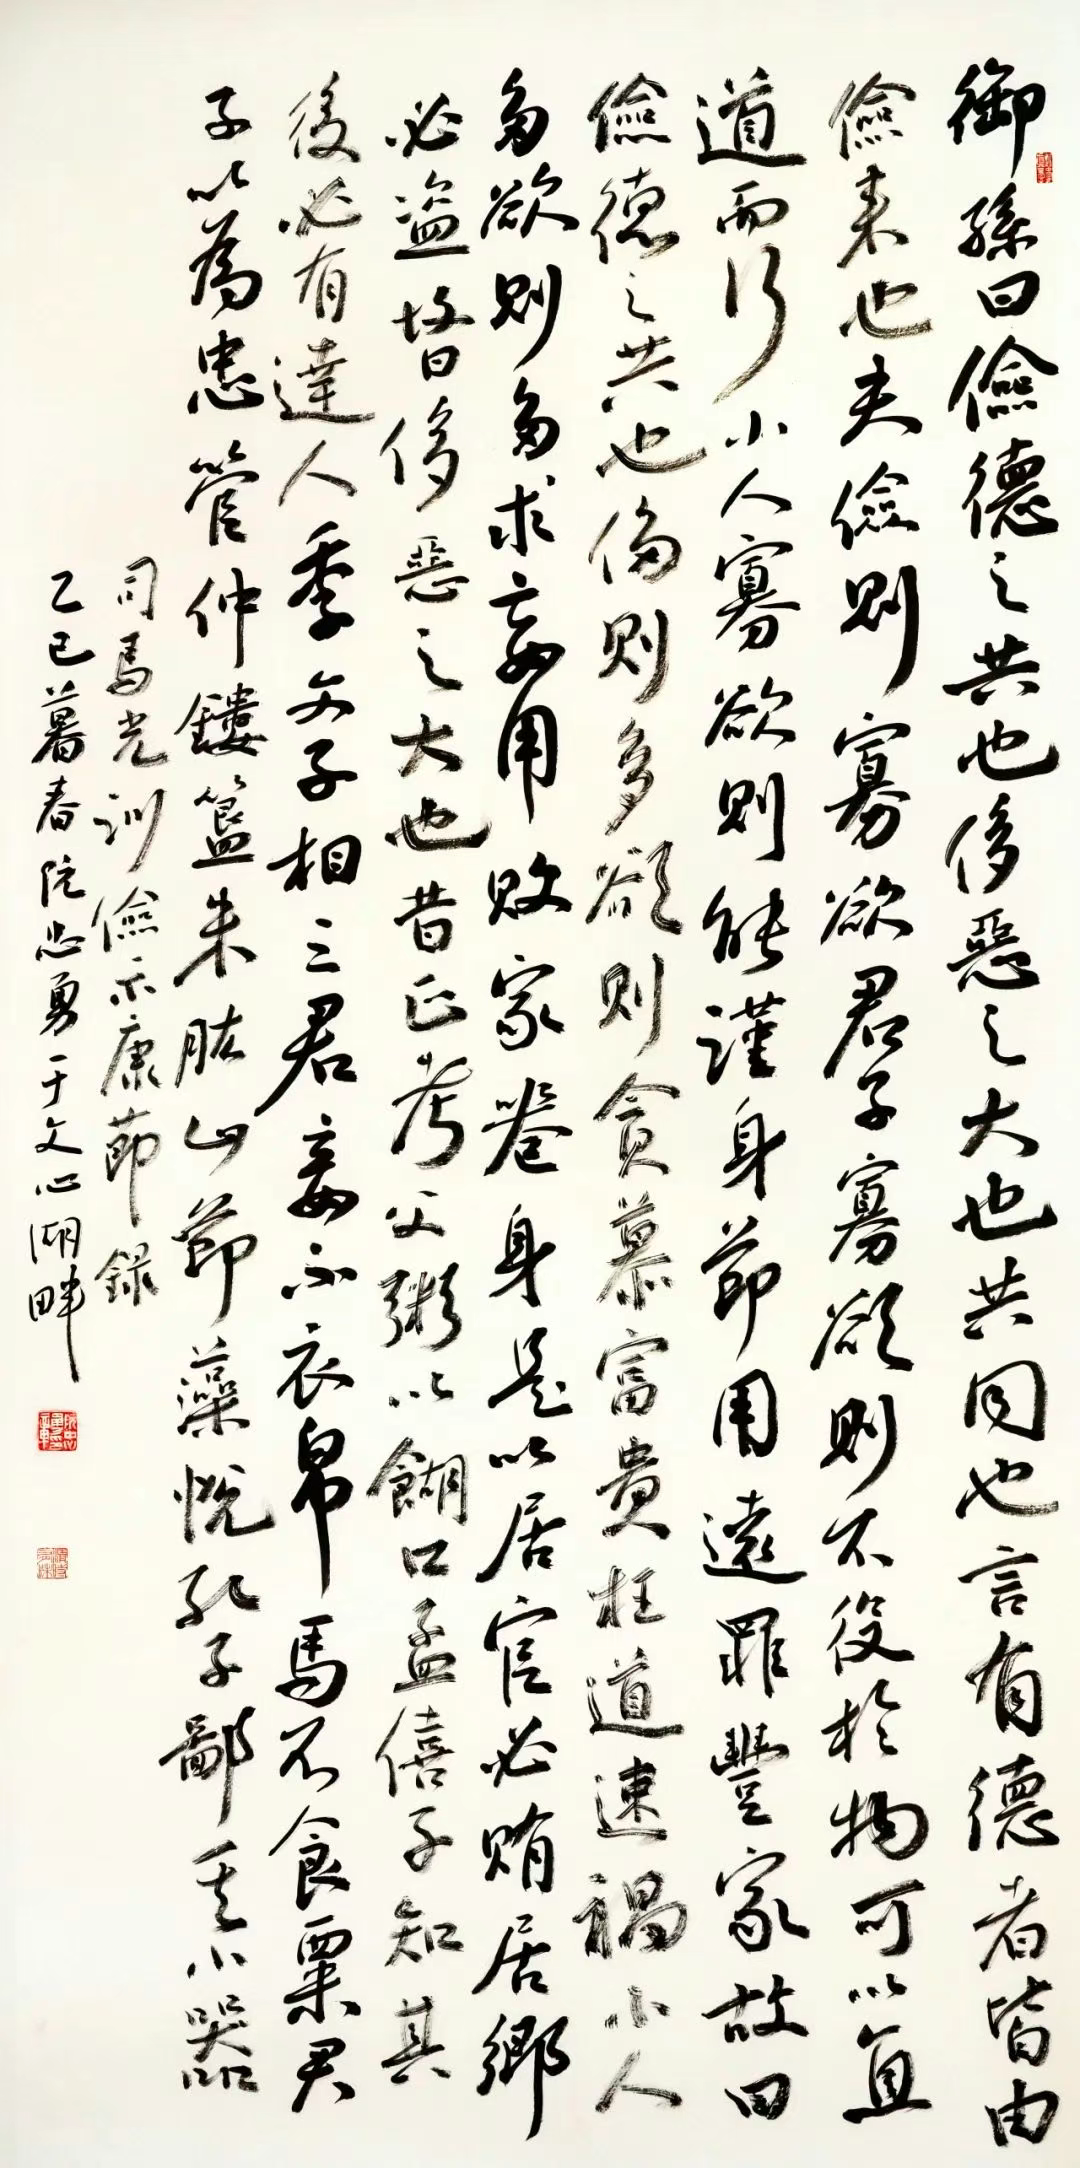 御孫曰儉德之共也侈惡之大也共同也言有德者皆由
儉来也夫儉則寡欲君子寡欲則不役於物可以直
道而行小人寡欲則能謹身節用遠罪豐家故曰
儉德之共也侈則多欲君子多欲則貪慕富貴枉道速禍小人
多欲則多求妄用敗家喪身是以居官必賄居鄉
必盗故曰侈惡之大也昔正考父粥以餬口孟僖子知其
後必有達人季文子相三君妾不衣帛馬不食粟君
子以為忠管仲鏤簋朱紘山節藻梲孔子鄙其小器
司馬光訓儉示康節録
乙巳暮春阮忠勇于文心湖畔